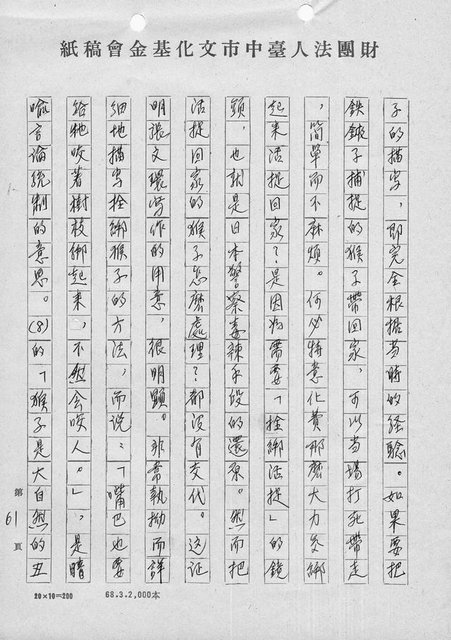 財團法人臺中市文化基金會稿紙
子的描寫，即完全根据当時的経驗。如果要把
鉄鋏子捕捉的猴子帶回家，可以当場打死帶走
，簡單而不麻煩。何必特意化費那麼大力気綁
起来活捉回家？是因為需要「拴綁活捉」的鏡
頭，也就是日本警察毒辣手段的還原。然而把
活捉回家的猴子怎麼處理？都没有交代。这証
明張文環寫作的用意，很明顯。非常執拗而詳
細地描写拴綁猴子的方法，而說：「嘴巴也要
給牠咬著樹枝綁起来，不然会咬人。」，是暗
喻言論統制的意思。(8)的「猴子是大自然的丑
第61頁
20×10=200
68.3.2,000本